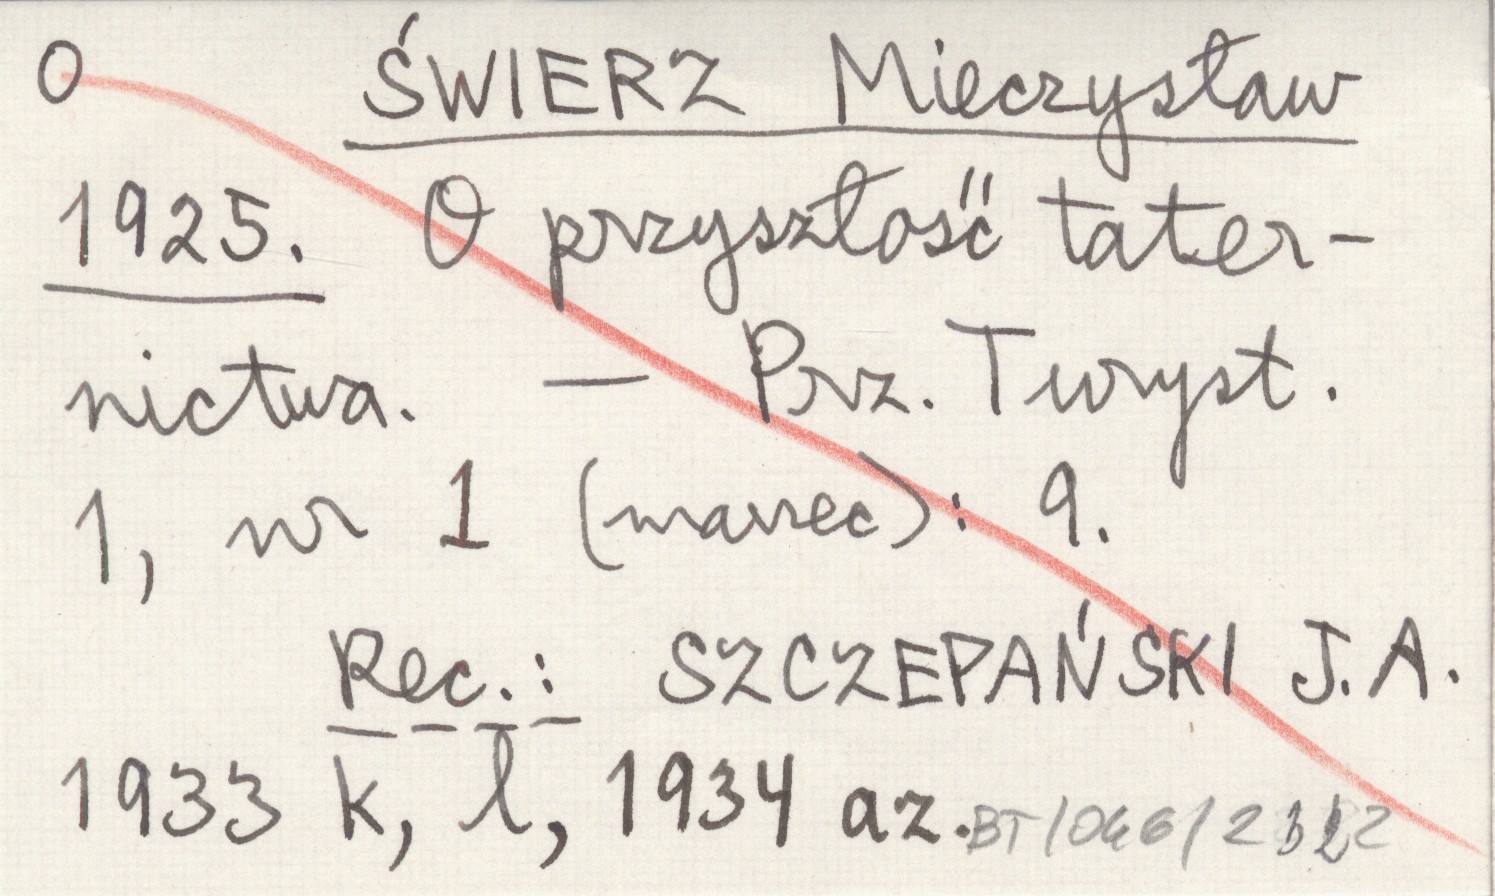 O ŚWIERZ Mieczysław
1925. O przyszłość tater-
nictwa. — Prz. Turyst.
1, nr 1 (marzec): 9.
Rec.: SZCZEPAŃSKI J.A.
1933 k, l, 1934 az.